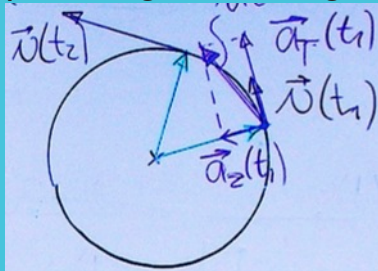 v⃗(t₂)
a⃗_T(t₁)
v⃗(t₁)
a⃗_z(t₁)